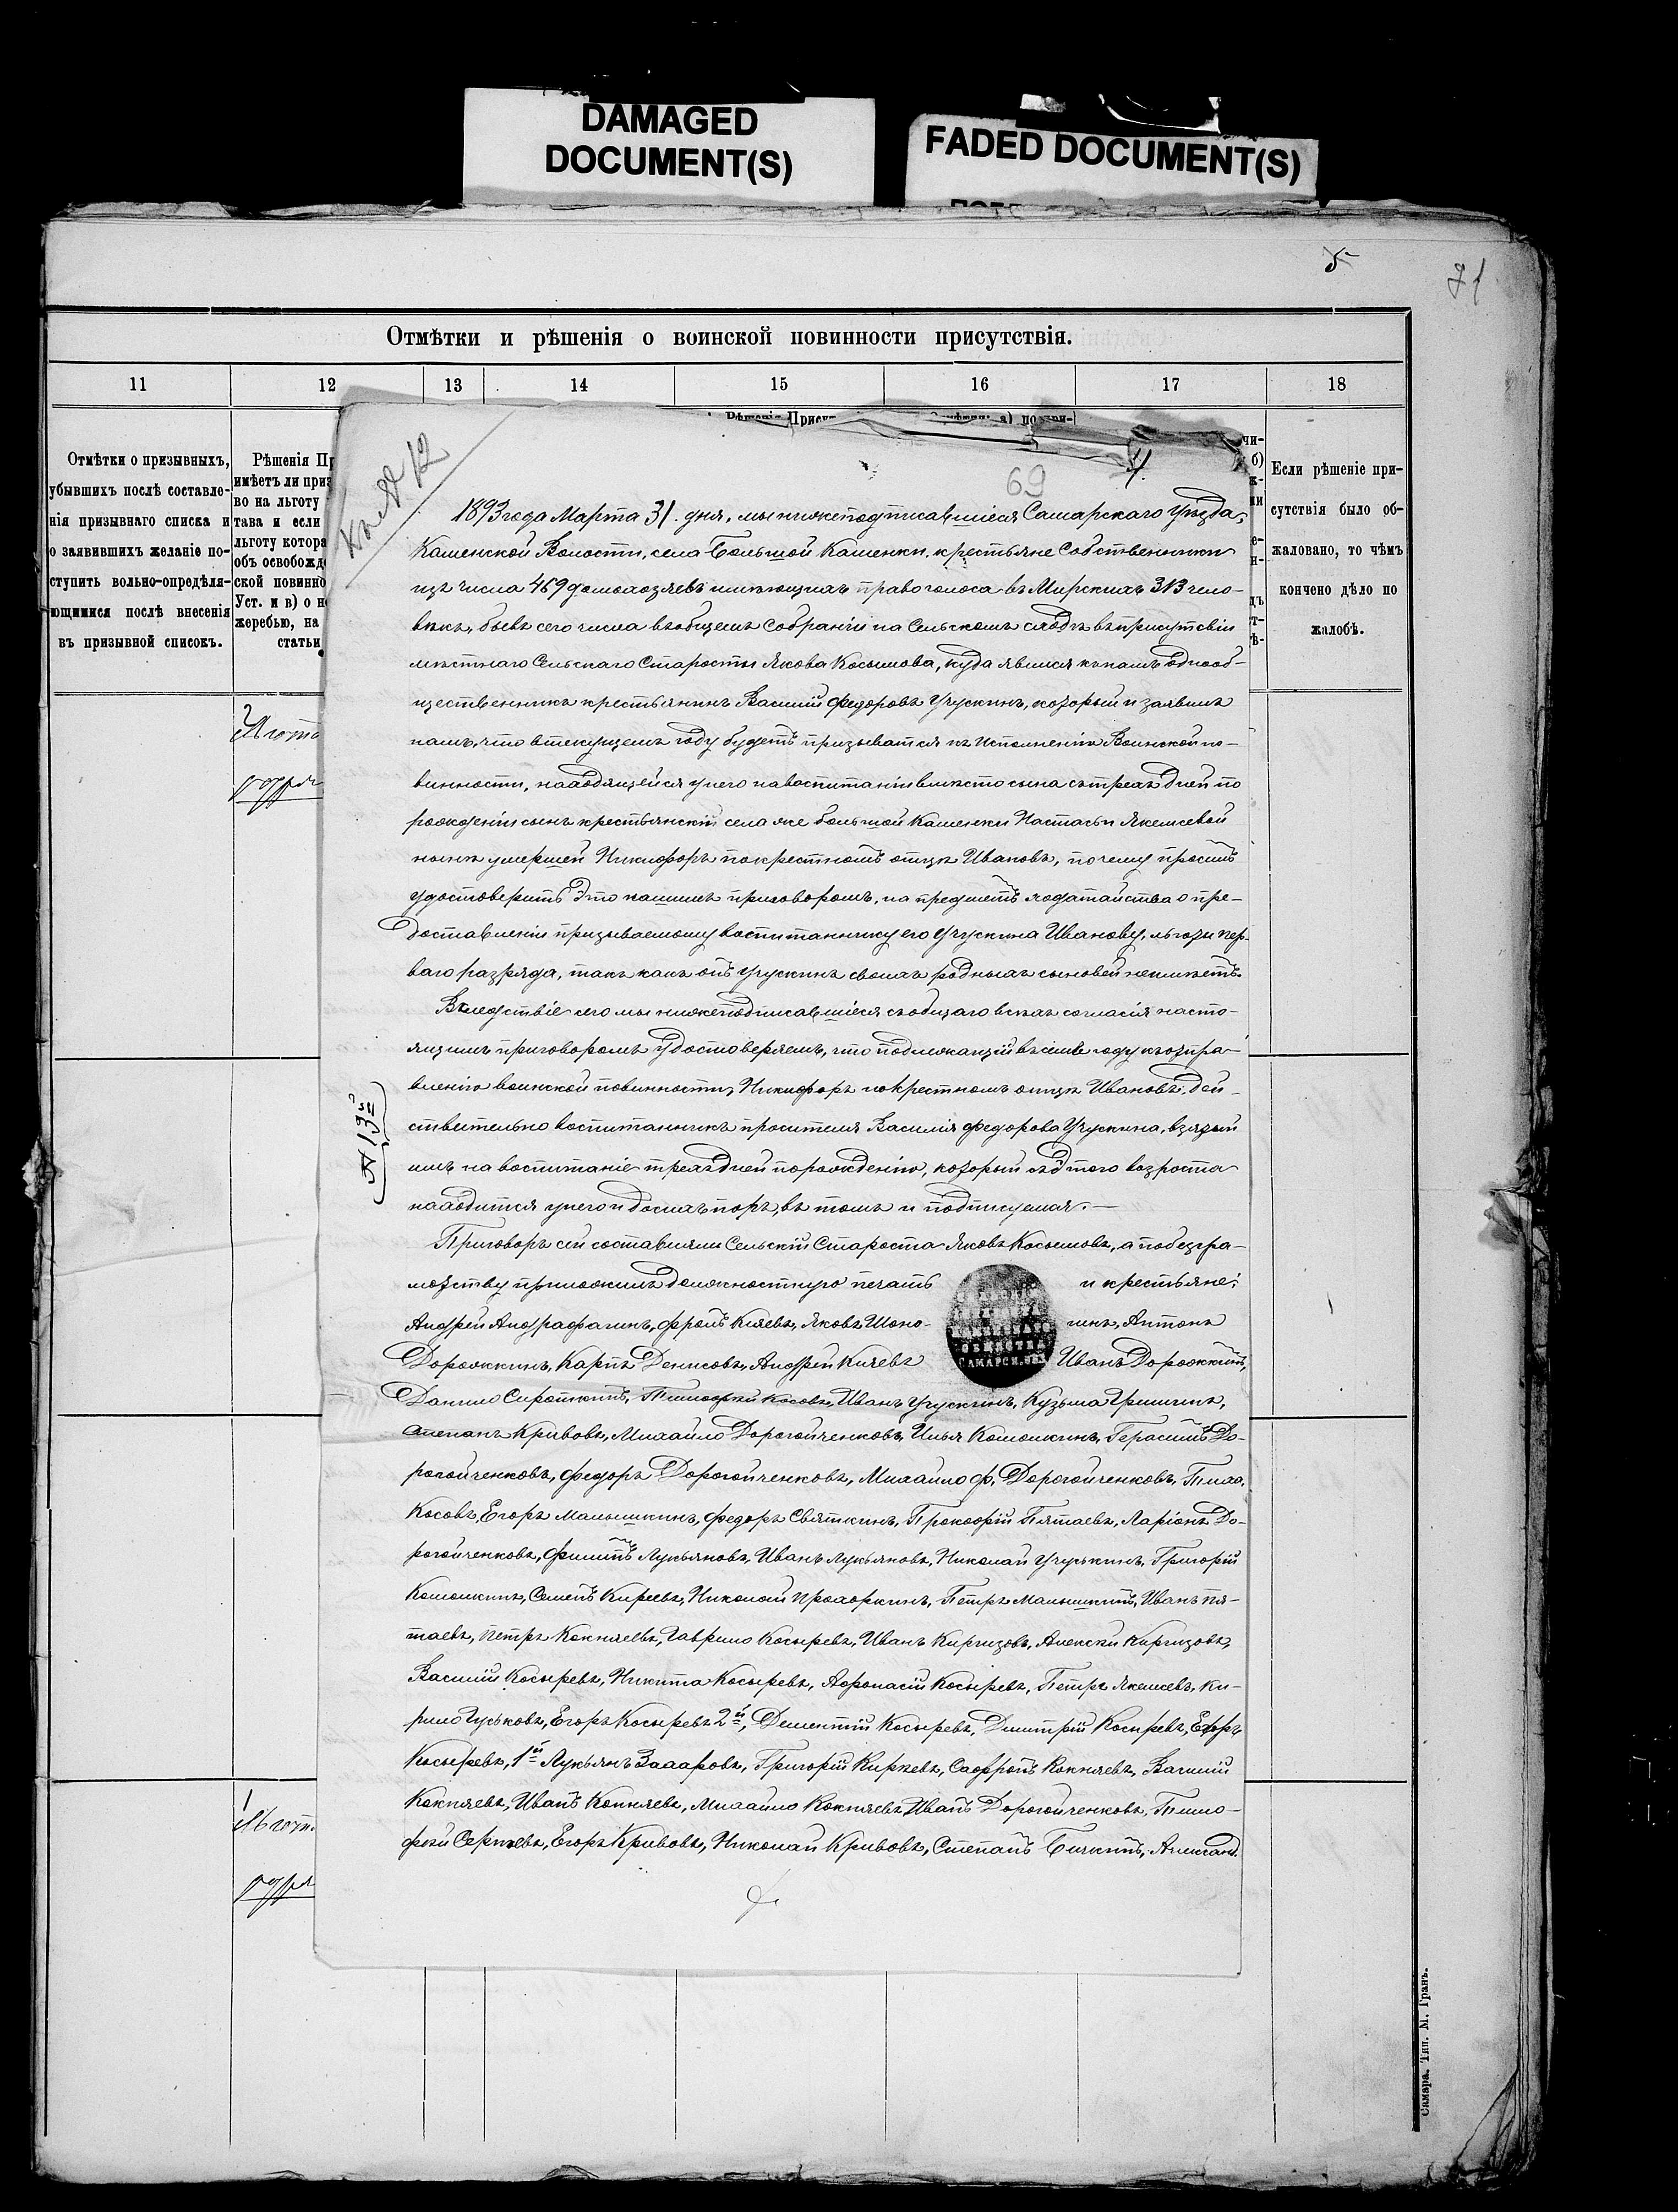 DAMAGED
DOCUMENT(S)
FADED DOCUMENT(S)
5
71
Отмѣтки и рѣшенія о воинской повинности присутствія.
11 12 13 14 15 16 17 18
Отмѣтки о призывныхъ,
убывшихъ послѣ составле-
нія призывнаго списка и
о заявившихъ желаніе по-
ступить вольно-опредѣля-
ющимися послѣ внесенія
въ призывной списокъ.
Рѣшенія Пр
имѣетъ ли приз
во на льготу
тава и если
льготу котора
объ освобожд
ской повинно
Уст. и в) о н
жеребью, на
статьи
Если рѣшеніе при-
сутствія было об-
жаловано, то чѣмъ
кончено дѣло по
жалобѣ.
Къ № 12
69
4.
1893 года Марта 31. дня, мы нижеподписавшіеся Самарскаго Уѣзда,
Каменской Волости, села Большой Каменки, крестьяне Собственники
изъ числа 469 домохозяевъ имѣющихъ право голоса въ Мирскихъ 313 чело-
вѣкъ, бывъ сего числа въ общемъ Собраніи на Сельскомъ сходѣ въ присутсвіи
мѣстнаго Сельскаго Старосты Якова Косымова, куда явился къ намъ однооб-
щественникъ крестьянинъ Василій Федоровъ Учускинъ, который и заявилъ
намъ, что втекущемъ году будетъ призыватся къ исполненію Воинской по-
винности, находящейся унего навоспитаніи вмѣсто сына съ трехъ дней по
рожденіи сынъ крестьянскій села же большой Каменки Настасьи Якемсевой
нынѣ умершей Никифоръ покрестномъ отцѣ Ивановъ, почему проситъ
удостоверить Это нашимъ приговоромъ, на предметъ ходатайства о пре-
доставленіи призываемому воспитаннику его Учускина Иванову, льготы пер-
ваго разряда, такъ какъ онъ Учускинъ своихъ родныхъ сыновей неимѣетъ.
Вследствіе сего мы нижеподписавшіеся съобщаго всѣхъ согласія насто-
ящимъ приговоромъ удостоверяемъ, что подлежащій въ семъ году къотпра-
вленію воинской повинности, Никифоръ покрестномъ отцѣ Ивановъ, дей-
ствительно воспитанникъ просителя Василія Федорова Учускина, взятый
имъ на воспитаніе трехъ дней порожденію, который съ того возроста
находится унего и досихъ поръ, въ томъ и подписуемся.—
№ 13й
Приговоръ сей составляли Сельскій Староста Яковъ Косымовъ, а побезгра-
мотству приложилъ должностную печать и крестьяне:
Андрей Андрафагинъ, Фролъ Киязевъ, Яковъ Шоно- гинъ, Антонъ
Дорожкинъ, Карпъ Денисовъ, Андрей Кичевъ Иванъ Дорожкинъ,
САМАРСК.
Данило Сироткинъ, Тимофей Косовъ, Иванъ Учускинъ, Кузьма Гришинъ,
Степанъ Кривовъ, Михайло Дорогойченковъ, Илья Комошкинъ, Герасимъ До-
рогойченковъ, Федоръ Дорогойченковъ, Михайло Ф. Дорогойченковъ, Тимо.
Косовъ, Егоръ Малышкинъ, Федоръ Святкинъ, Прокофій Пятаевъ, Ларіонъ До-
рогойченковъ, Филипъ Лукьяновъ, Иванъ Лукьяновъ, Николай Учуськинъ, Григорій
Комошкинъ, Семенъ Киреевъ, Николай Прохоркинъ, Петръ Малышкинъ, Иванъ Пя-
таевъ, Петръ Кокняевъ, Гаврило Косыревъ, Иванъ Киргизовъ, Алексѣй Киргизовъ,
Василій Косыревъ, Никита Косыревъ, Афонасій Косыревъ, Петръ Якемсевъ, Ки-
рило Гуськовъ, Егоръ Косыревъ 2й, Дементій Косыревъ, Дмитрій Косыревъ, Егоръ
Косыревъ, 1й Лукьянъ Захаровъ, Григорій Киреевъ, Сафронъ Кокняевъ, Василій
Кокняевъ, Иванъ Кокняевъ, Михайло Кокняевъ, Иванъ Дорогойченковъ, Тимо-
фей Сергѣевъ, Егоръ Кривовъ, Николай Кривовъ, Степанъ Бичкинъ, Александ.
Самара. Тип. М. Гранъ.